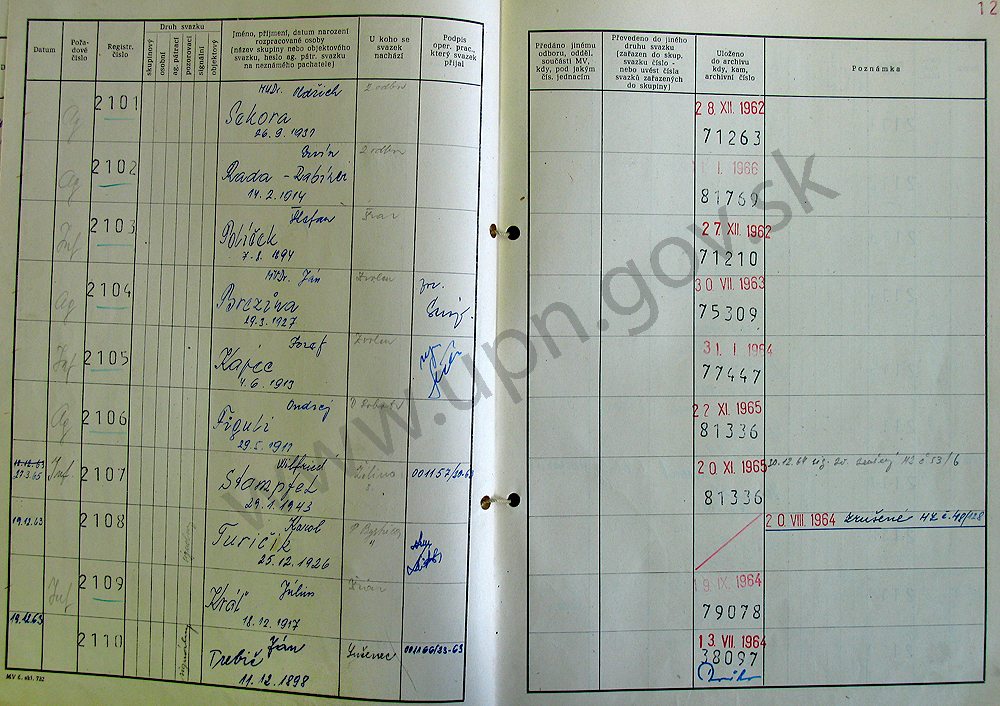 12
Datum
Pořa-
dové
číslo
Registr.
číslo
Druh svazku
skupinový
osobní
ag. pátrací
pozorovací
signální
objektový
Jméno, příjmení, datum narození
rozpracované osoby
(název skupiny nebo objektového
svazku, heslo ag. pátr. svazku
na neznámého pachatele)
U koho se
svazek
nachází
Podpis
oper. prac.,
který svazek
přijal
Předáno jinému
odboru, odděl.
součásti MV,
kdy, pod jakým
čís. jednacím
Převedeno do jiného
druhu svazku
(zařazen do skup.
svazku číslo -
nebo uvést čísla
svazků zařazených
do skupiny)
Uloženo
do archivu
kdy, kam,
archivní číslo
Poznámka
Ag
2101
MUDr. Oldřich
Sekora
26. 9. 1931
2 odbor
28. XII. 1962
71263
Ag
2102
Ervín
Rada - Rabiner
14. 2. 1914
2 odbor
I. 1966
81769
Inf
2103
Štefan
Políček
7. 8. 1894
27. XII. 1962
71210
Ag
2104
MUDr. Ján
Brezina
29. 3. 1927
Zvolen
30 VII. 1963
75309
Inf
2105
Jozef
Kapec
4. 6. 1913
Zvolen
31. I. 1964
77447
Ag
2106
Ondrej
Figuli
29. 5. 1917
22 XI. 1965
81336
27.3.65
Inf
2107
Wilfried
Stampfel
29. 1. 1943
Žilina
20 XI. 1965
81336
19.12.63
2108
Karol
Turičík
25. 12. 1926
20. VIII. 1964 Zrušené
Inf
2109
Július
Kráľ
18. 12. 1917
19. IX. 1964
79078
19.12.63
2110
signálny
Ján
Trebič
11. 12. 1898
Lučenec
13. VII. 1964
38097
MV č. skl. 732
www.upn.gov.sk